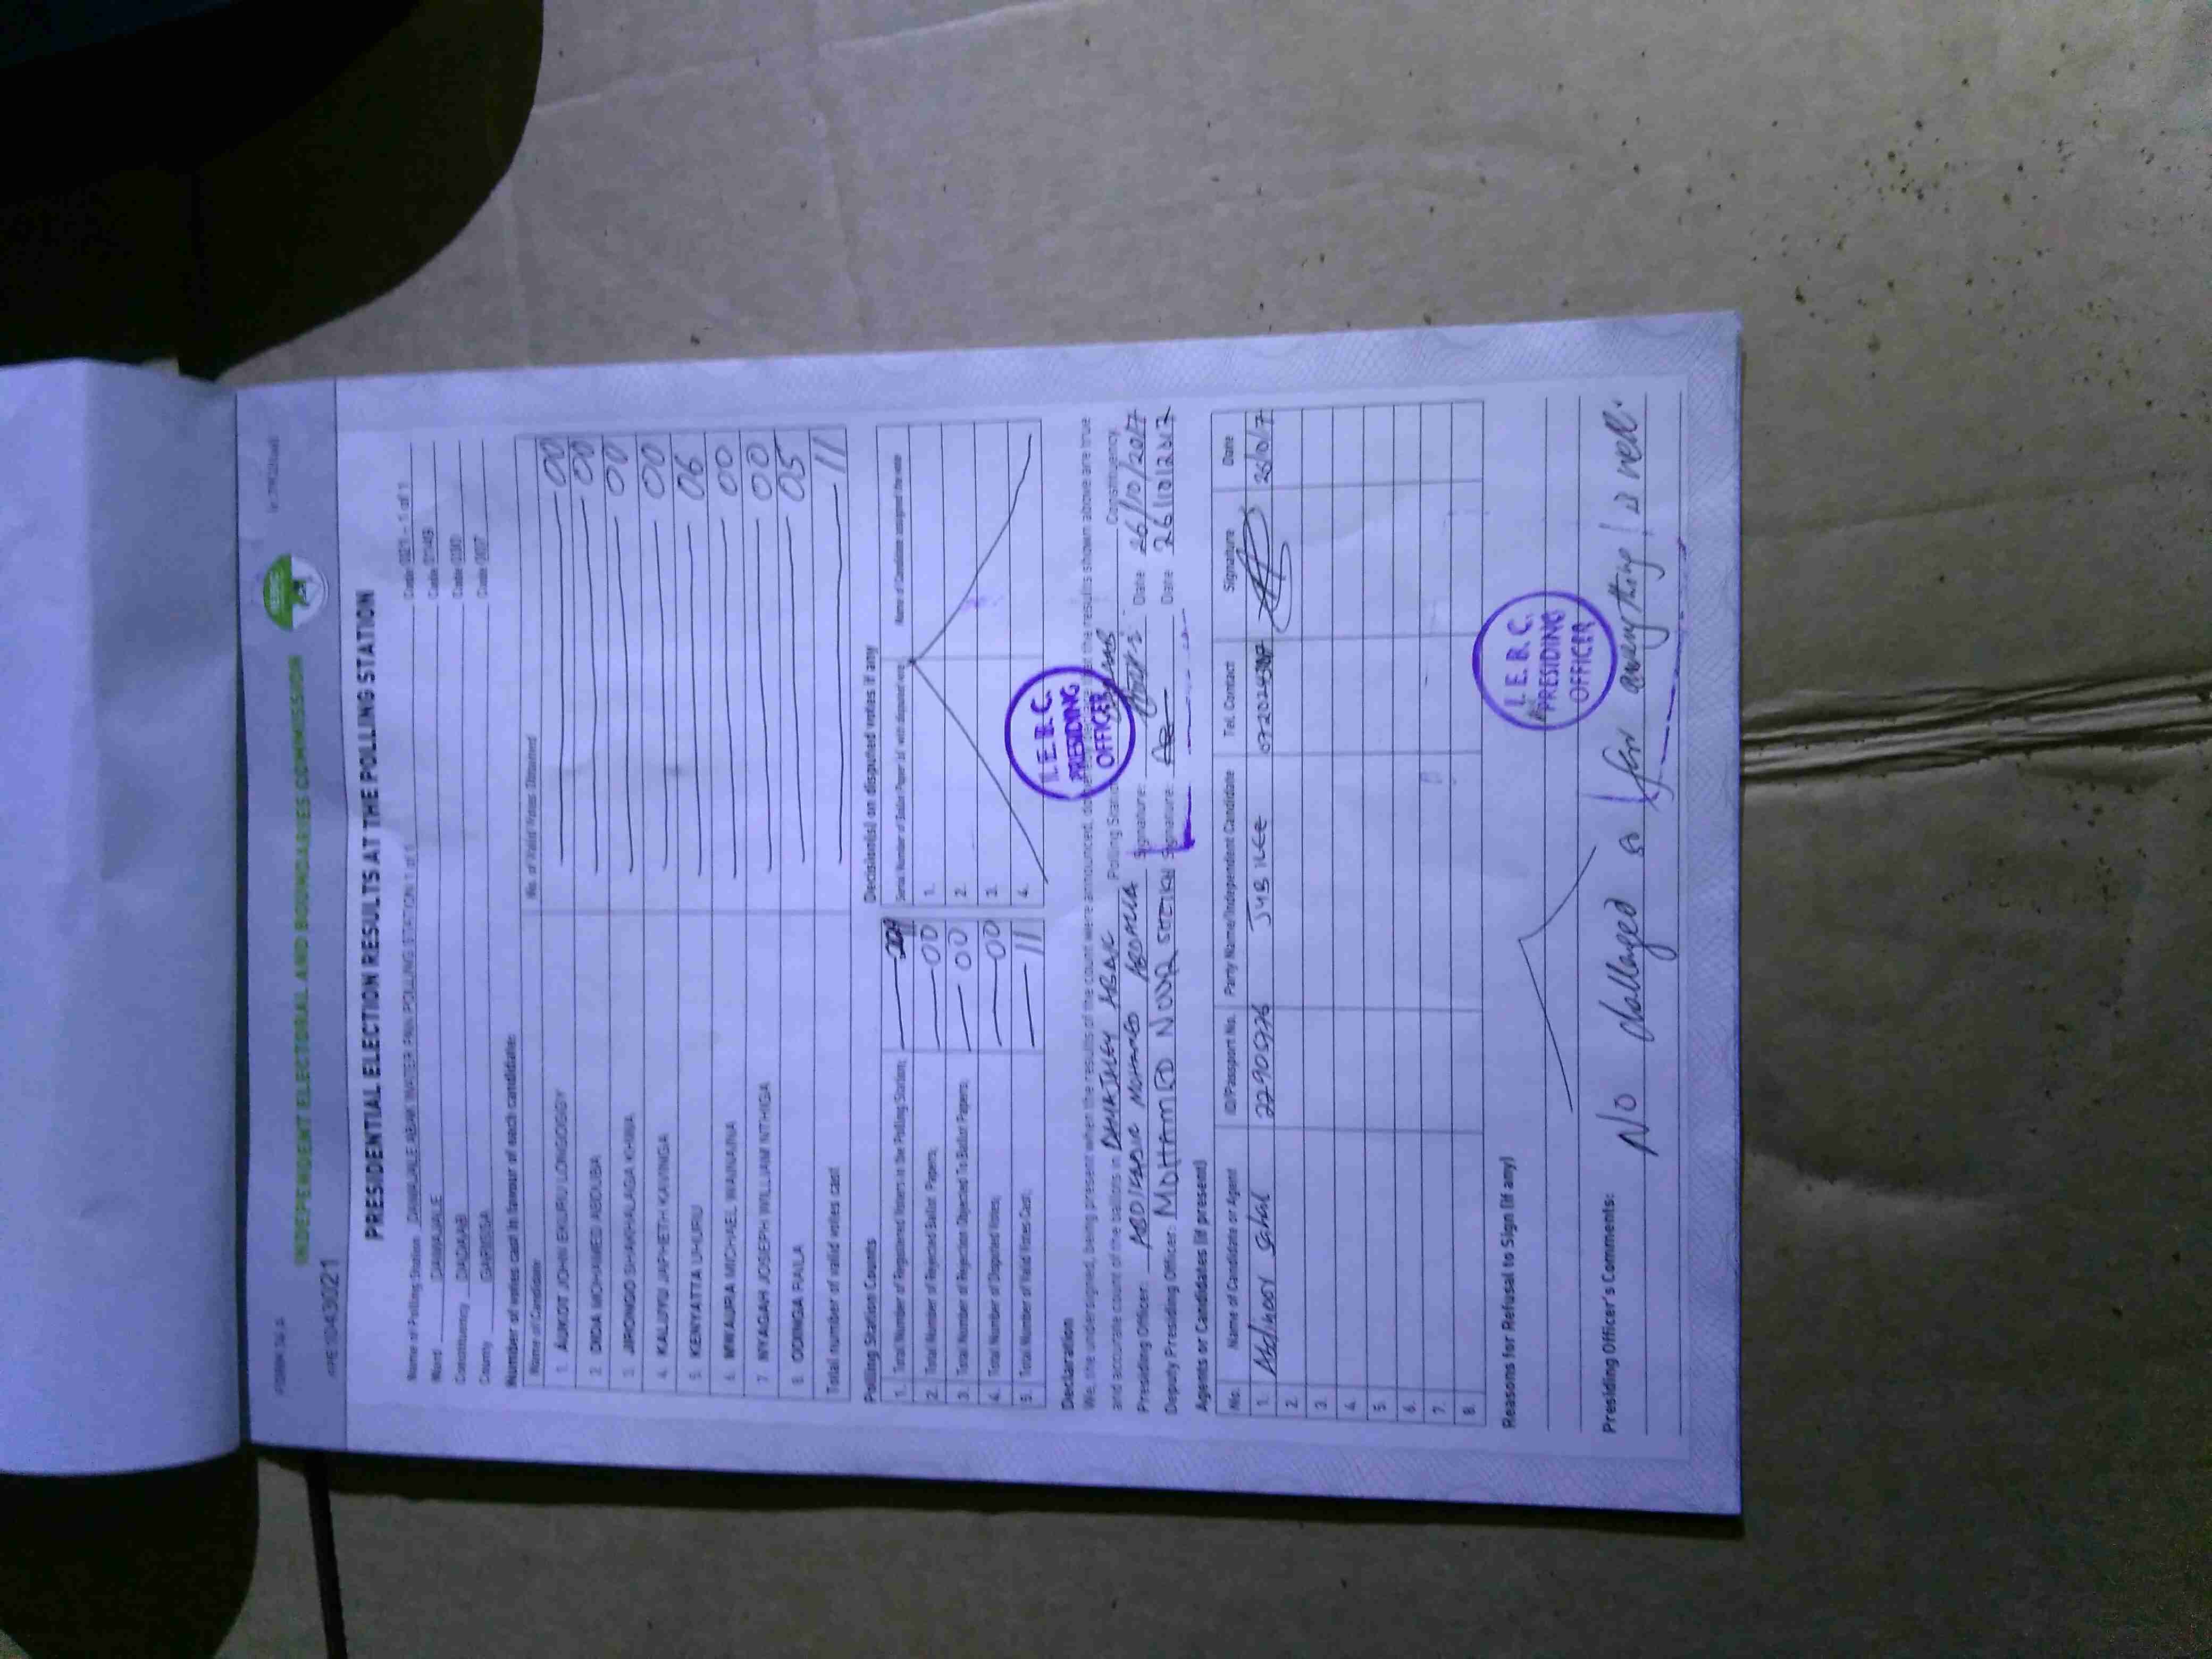 FORM 34 A
INDEPENDENT ELECTORAL AND BOUNDARIES COMMISSION
PRESIDENTIAL ELECTION RESULTS AT THE POLLING STATION
Name of Polling Station WATER PAN POLLING STATION 1 of 1 Code 021 - 1 of 1
Ward Code
Constituency DADAAB Code
County GARISSA Code 007
Number of votes cast in favour of each candidate:
Name of Candidate No. of Valid Votes Obtained
1. AUKOT JOHN EKURU LONGOGGY 00
2. DIDA MOHAMED ABDUBA 00
3. JIRONGO SHAKHALAGA KHWA 00
4. KALUYU JAPHETH KAVINGA 00
5. KENYATTA UHURU 06
6. MWAURA MICHAEL WAINAINA 00
7. NYAGAH JOSEPH WILLIAM NTHIGA 00
8. ODINGA RAILA 05
Total number of valid votes cast 11
Polling Station Counts
1. Total Number of Registered Voters in the Polling Station;
2. Total Number of Rejected Ballot Papers; 00
3. Total Number of Rejection Objected To Ballot Papers; 00
4. Total Number of Disputed Votes; 00
5. Total Number of Valid Votes Cast; 11
Decision(s) on disputed votes if any
Serial Number of Ballot Paper (s) with disputed vote Name of Candidate assigned the vote
1.
2.
3.
4.
Declaration
We, the undersigned, being present when the results of the count were announced, do the results shown above are true
and accurate count of the ballots in Polling Station Constituency
I.E.B.C. PRESIDING OFFICER
Presiding Officer: Signature: Date 26/10/2017
Deputy Presiding Officer: MOHAMED NOOR SHEIKH Signature: Date 26/10/2017
Agents or Candidates (if present)
No. Name of Candidate or Agent ID/Passport No. Party Name/Independent Candidate Tel. Contact Signature Date
1. JUBILEE
2.
3.
4.
5.
6.
7.
8.
Reasons for Refusal to Sign (if any)
I.E.B.C. PRESIDING OFFICER
Presiding Officer's Comments:
No so far everything is well.